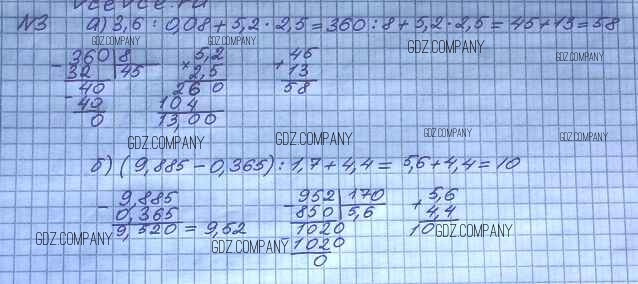 vcevce.ru
№3 а) 3,6 : 0,08 + 5,2 · 2,5 = 360 : 8 + 5,2 · 2,5 = 45 + 13 = 58
GDZ.COMPANY GDZ.COMPANY GDZ.COMPANY
- 360 | 8 × 5,2 + 45
32 | 45 2,5 13
- 40 260 58
40 104
0 13,00
GDZ.COMPANY GDZ.COMPANY GDZ.COMPANY GDZ.COMPANY
б) (9,885 - 0,365) : 1,7 + 4,4 = 5,6 + 4,4 = 10
- 9,885 - 952 | 170 + 5,6
0,365 850 | 5,6 4,4
9,520 = 9,52 1020 10
GDZ.COMPANY GDZ.COMPANY GDZ.COMPANY
1020
0